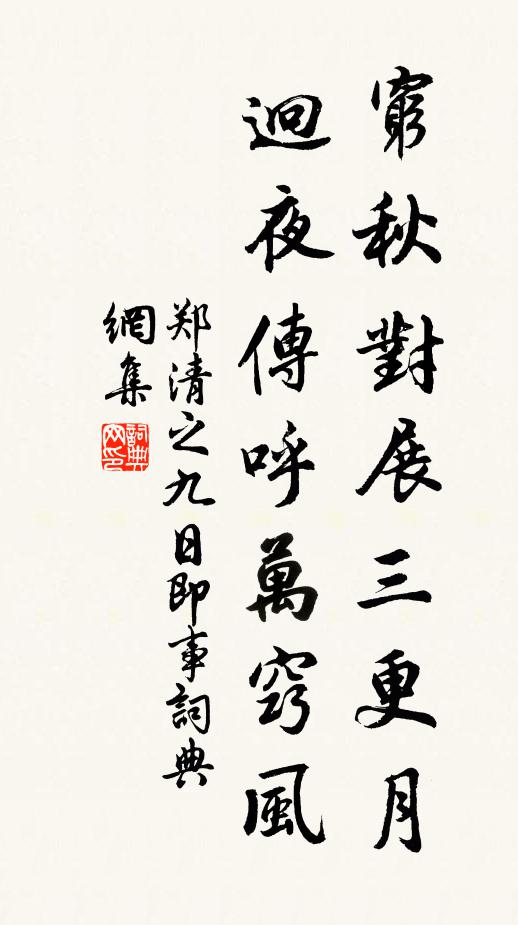 窮秋對展三更月
迥夜傳呼萬竅風
郑清之九日即事詞典
網集
詞典
网印